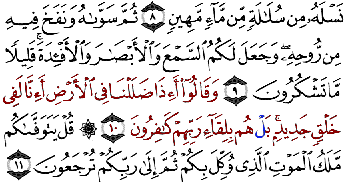 نَسْلَهُۥ مِن سُلَٰلَةٍ مِّن مَّآءٍ مَّهِينٍ ٨ ثُمَّ سَوَّىٰهُ وَنَفَخَ فِيهِ
مِن رُّوحِهِۦ وَجَعَلَ لَكُمُ ٱلسَّمْعَ وَٱلْأَبْصَٰرَ وَٱلْأَفْـِٔدَةَ ۚ قَلِيلًا
مَّا تَشْكُرُونَ ٩ وَقَالُوٓا۟ أَءِذَا ضَلَلْنَا فِى ٱلْأَرْضِ أَءِنَّا لَفِى
خَلْقٍ جَدِيدٍۭ ۚ بَلْ هُم بِلِقَآءِ رَبِّهِمْ كَٰفِرُونَ ١٠ ۞ قُلْ يَتَوَفَّىٰكُم
مَّلَكُ ٱلْمَوْتِ ٱلَّذِى وُكِّلَ بِكُمْ ثُمَّ إِلَىٰ رَبِّكُمْ تُرْجَعُونَ ١١